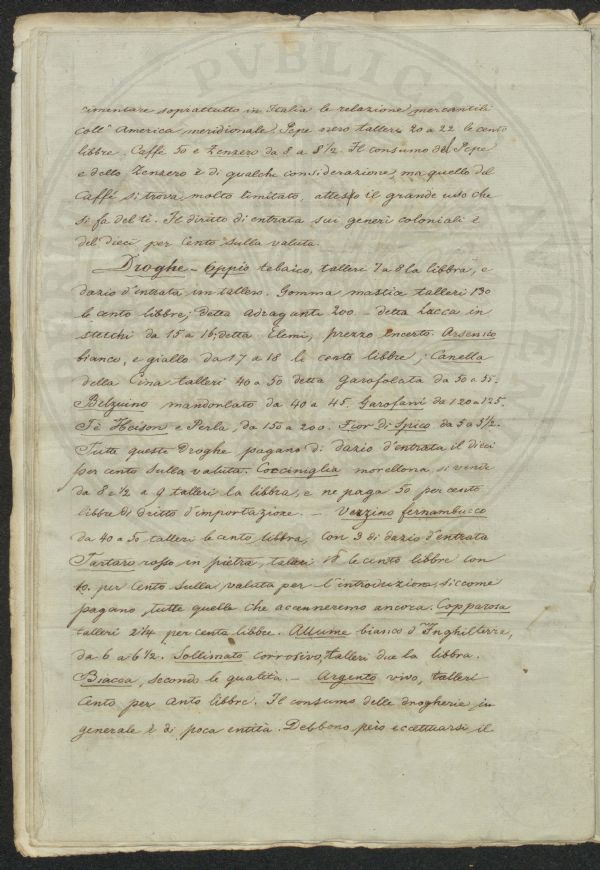 cimentare soprattutto in Italia le relazione mercantili
coll' America meridionale. Pepe nero talleri 20 a 22 le cento
libbre. Caffè 50 e Zenzero da 8 a 8 1/2. Il consumo del Pepe
e dello Zenzero è di qualche considerazione, ma quello del
Caffè si trova molto limitato, atteso il grande uso che
si fa del tè. Il diritto di entrata sui generi coloniali è
del dieci per cento sulla valuta.
Droghe = Oppio tebaico, talleri 7 a 8 la libbra, e
dazio d'entrata un tallero. Gomma mastice talleri 130
le cento libbre; detta Adraganta 200 - detta Lacca in
stecchi da 15 a 16; detta Elemi, prezzo incerto. Arsenico
bianco, e giallo da 17 a 18 le cento libbre; Canella
della Cina talleri 40 a 50 detta Garofolata da 50 a 55.
Belzuino mandonlato da 40 a 45. Garofani da 120 a 125
Tè Heison e Perla, da 150 a 200. Fior di Spico da 5 a 5 1/2.
Tutte queste Droghe pagano di dazio d'entrata il dieci
per cento sulla valuta. Cocciniglia morellona, si vende
da 8 e 1/2 a 9 talleri la libbra, e ne paga 50 per cento
libbre di dritto d'importazione. - Verzino fernambucco
da 40 a 50 talleri le cento libbra, con 3 di dazio d'entrata
Tartaro rosso in pietra, talleri 18 le cento libbre con
10. per cento sulla valuta per l'introduzione, siccome
pagano tutte quelle che accenneremo ancora. Copparosa
talleri 2 1/4 per cento libbre. Allume bianco d'Inghilterra,
da 6 a 6 1/2. Sollimato corrosivo, talleri due la libbra.
Biacca, secondo le qualità. - Argento vivo, talleri
cento per cento libbre. Il consumo delle drogherie in
generale è di poca entità. Debbono però eccettuarsi il
PVBLIC